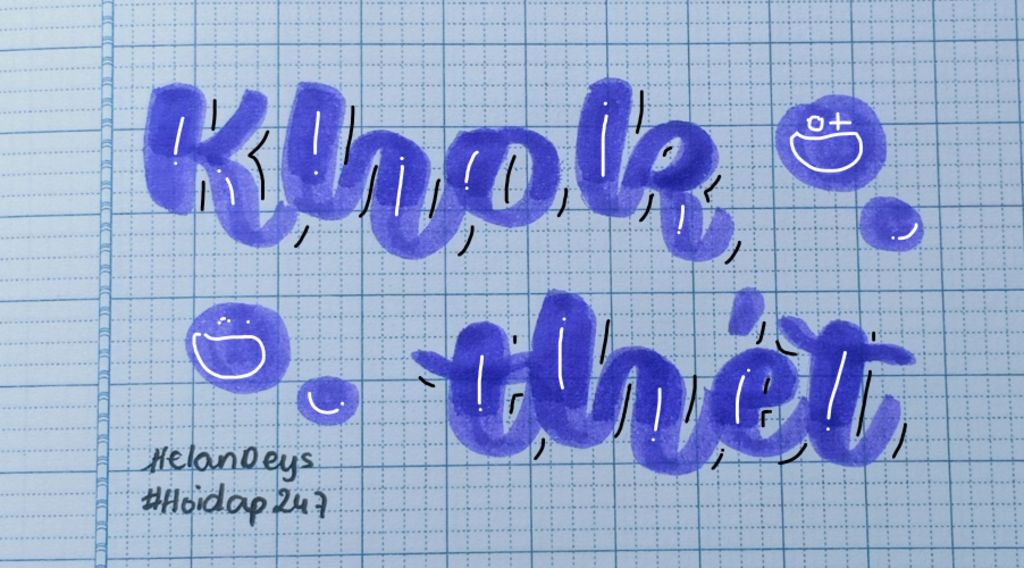 Khok
thét
HelanDeys
#Hoidap247